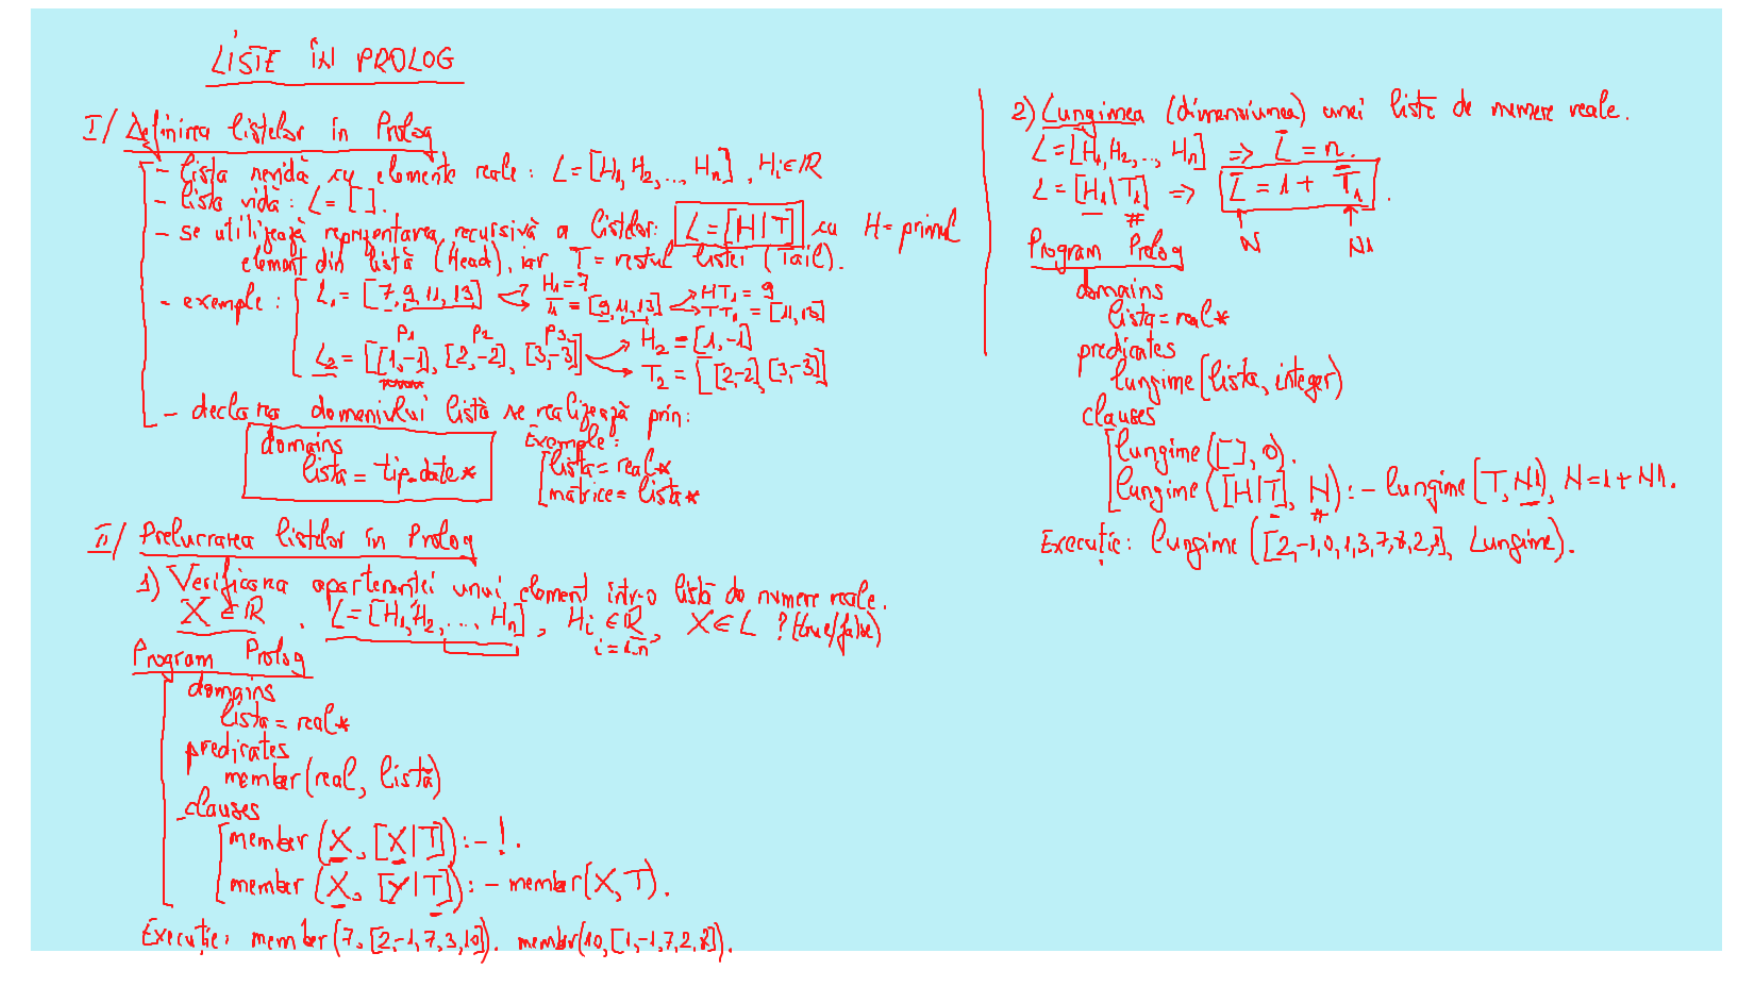 LISTE ÎN PROLOG
I/ Definirea listelor în Prolog
- lista nevidă cu elemente reale: L=[H1, H2, ..., Hn], Hi∈R
- lista vidă: L=[].
- se utilizează reprezentarea recursivă a listelor: L=[H|T] cu H=primul
element din listă (Head), iar T=restul listei (Tail).
- exemple: L1=[7,9,11,13] → H1=7
T1=[9,11,13] → HT1=9
TT1=[11,13]
P1 P2 P3
L2=[[1,-1],[2,-2],[3,-3]] → H2=[1,-1]
→ T2=[[2,-2],[3,-3]]
- declararea domeniului listă se realizează prin:
domains
lista = tip_date*
Exemple:
lista=real*
matrice=lista*
II/ Prelucrarea listelor în Prolog
1) Verificarea apartenenței unui element într-o listă de numere reale.
X∈R, L=[H1,H2,...,Hn], Hi∈R, X∈L ? (true/false)
i=1,n
Program Prolog
domains
lista=real*
predicates
member(real, listă)
clauses
member(X, [X|T]):-!.
member(X, [Y|T]):-member(X,T).
Execuție: member(7,[2,-1,7,3,10]). member(10,[1,-1,7,2,]).
2) Lungimea (dimensiunea) unei liste de numere reale.
L=[H1,H2,..,Hn] => L̄=n.
L=[H1|T1] => L̄=1+T̄1.
N N1
Program Prolog
domains
lista=real*
predicates
lungime(lista, integer)
clauses
lungime([],0).
lungime([H|T],N):-lungime(T,N1), N=1+N1.
Execuție: lungime([2,-1,0,1,3,7,,2,], Lungime).